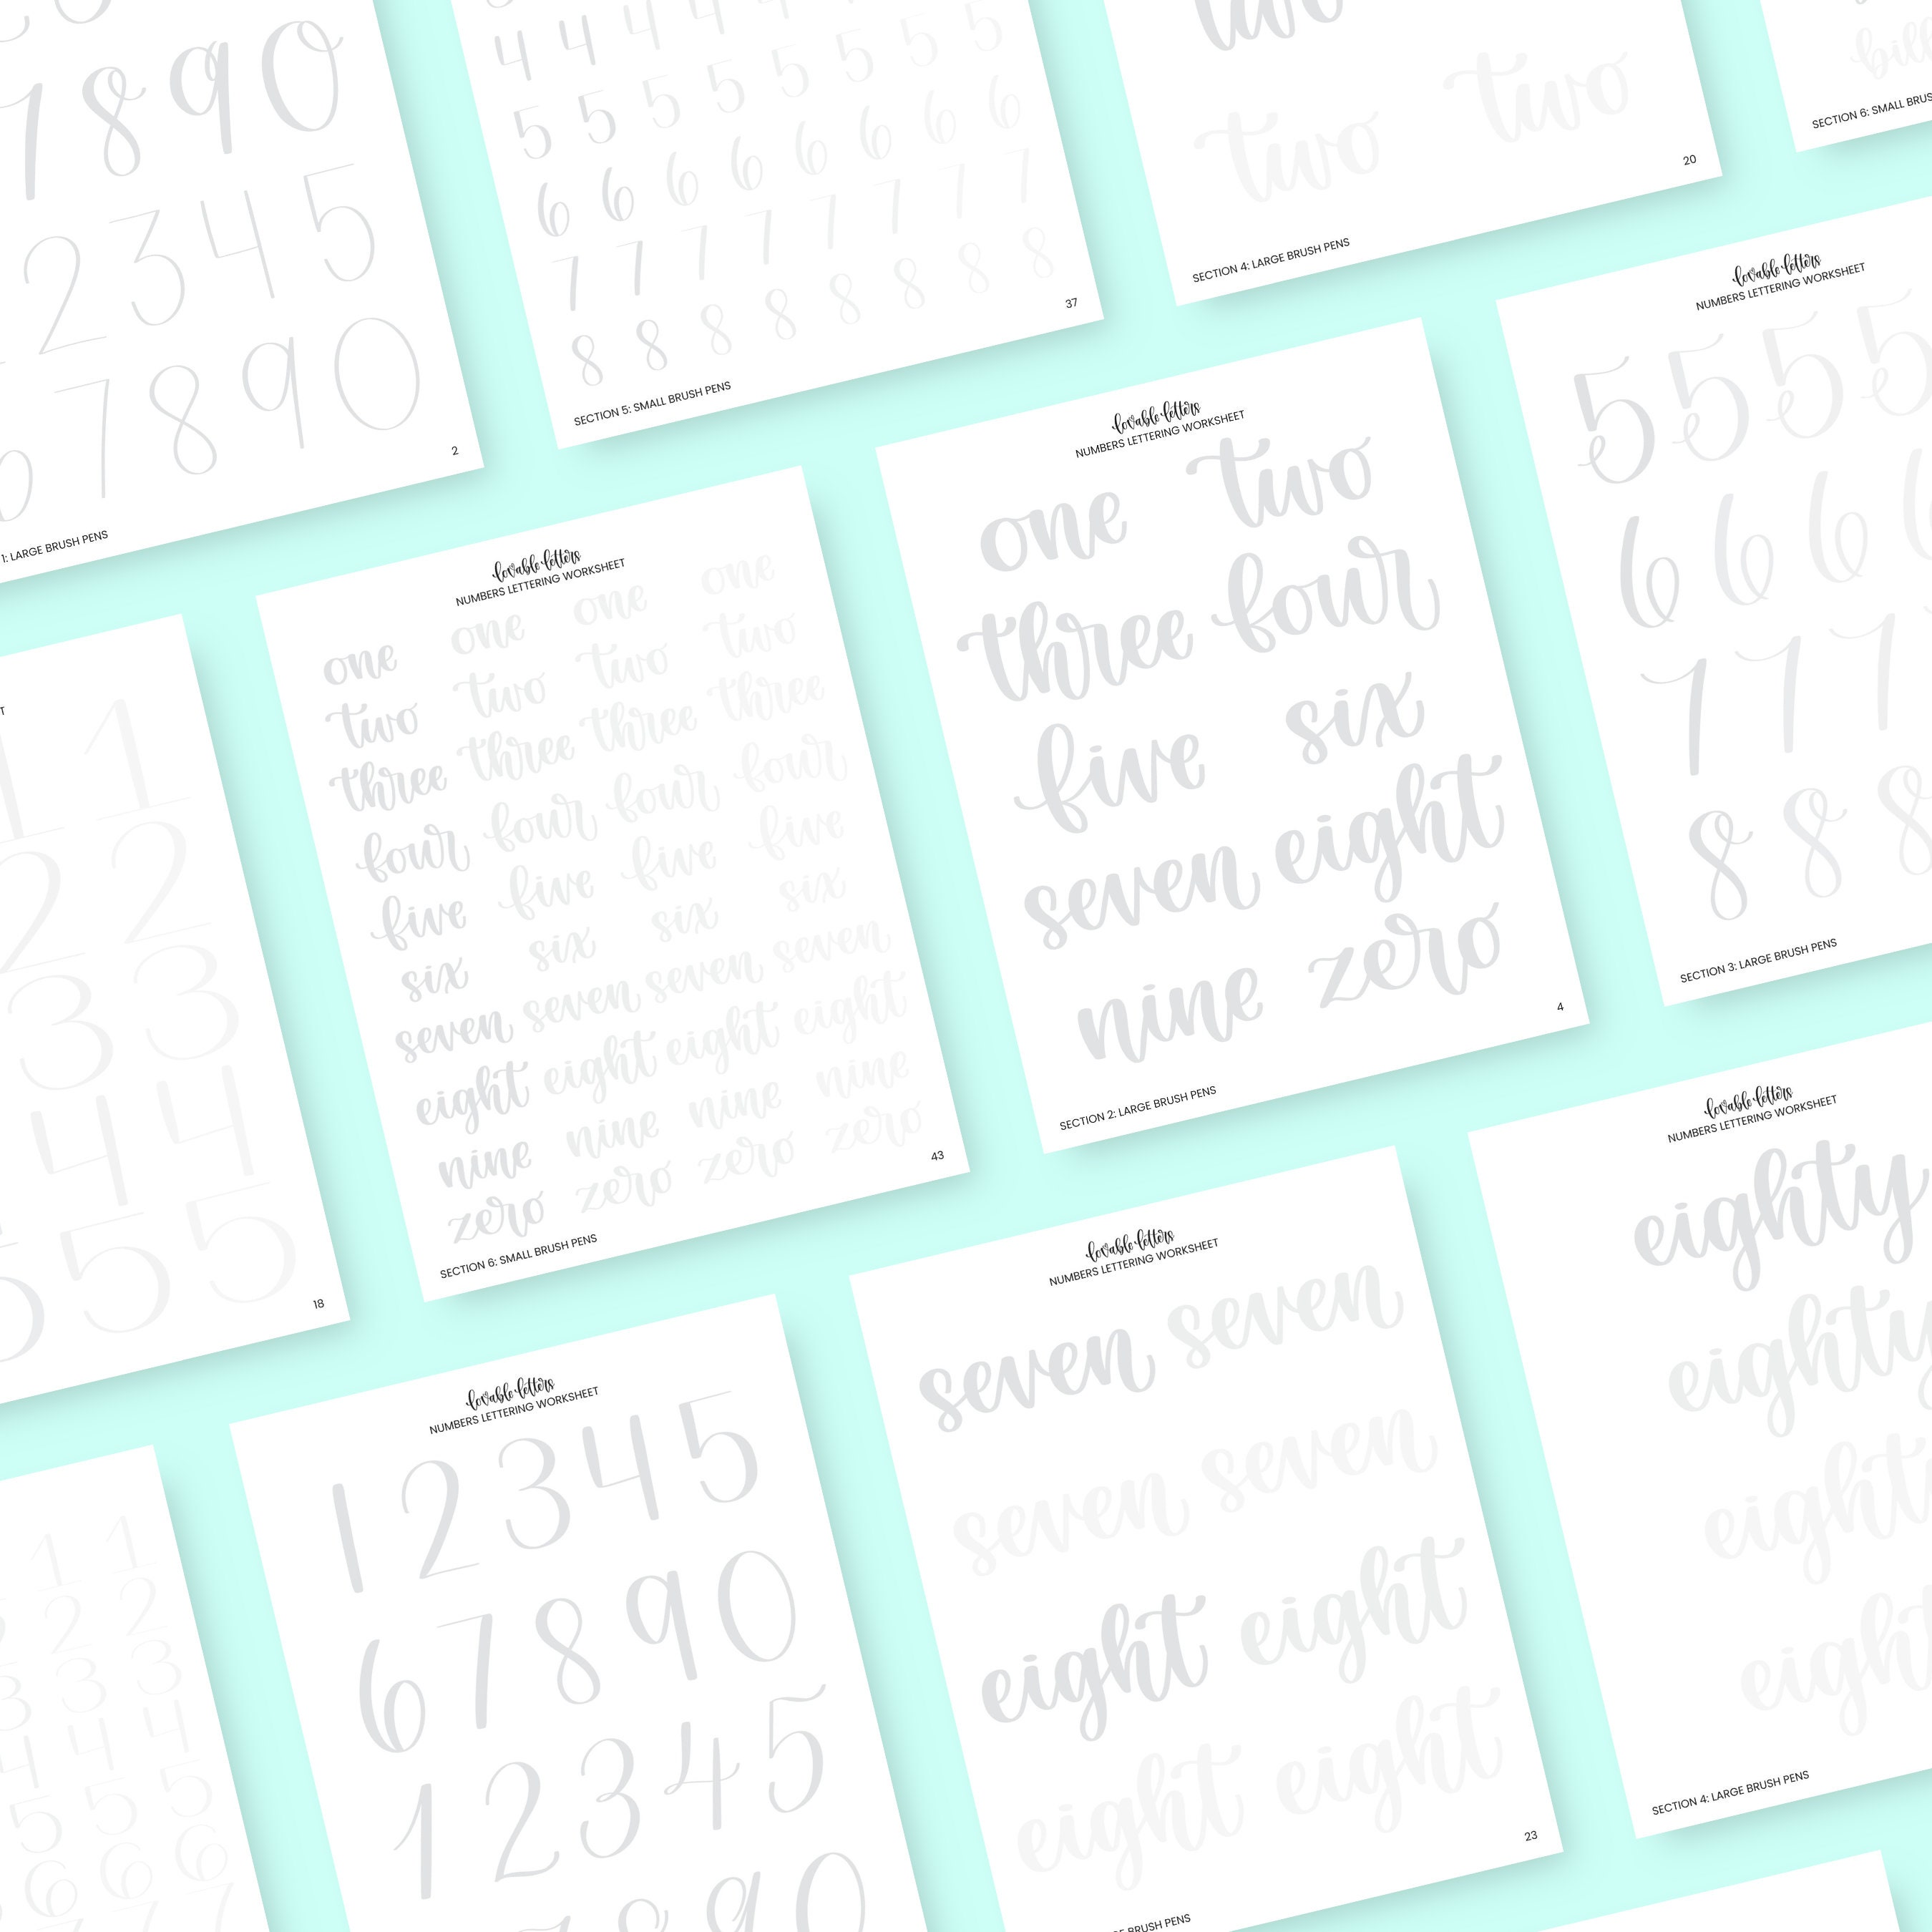 7 8 9 0
2 3 4 5
6 7 8 9 0
2
1: LARGE BRUSH PENS
4 4 4 4 4 4 5
5 5 5 5 5 5 5 5
6 6 6 6 6 6 6 6
7 7 7 7 7 7 7 7
8 8 8 8 8 8 8 8
37
SECTION 5: SMALL BRUSH PENS
two
two two
20
SECTION 4: LARGE BRUSH PENS
SECTION 6: SMALL BRUS
1 1
2 2
3 3
4 4
5 5 5
18
lovable letters
NUMBERS LETTERING WORKSHEET
one one one one
two two two two
three three three three
four four four four
five five five five
six six six six
seven seven seven seven
eight eight eight eight
nine nine nine nine
zero zero zero zero
43
SECTION 6: SMALL BRUSH PENS
lovable letters
NUMBERS LETTERING WORKSHEET
one two
three four
five six
seven eight
nine zero
4
SECTION 2: LARGE BRUSH PENS
lovable letters
NUMBERS LETTERING WORKSHEET
5 5 5 5
6 6 6 6
7 7 7
8 8 8
SECTION 3: LARGE BRUSH PENS
1 1
2 2
3 3 3
4 4 4
5 5 5
6 6 6
lovable letters
NUMBERS LETTERING WORKSHEET
1 2 3 4 5
6 7 8 9 0
1 2 3 4 5
7 8 9 0
lovable letters
NUMBERS LETTERING WORKSHEET
seven seven
seven seven
eight eight
eight eight
23
BRUSH PENS
lovable letters
NUMBERS LETTERING WORKSHEET
eighty
eighty
eighty
eight
SECTION 4: LARGE BRUSH PENS